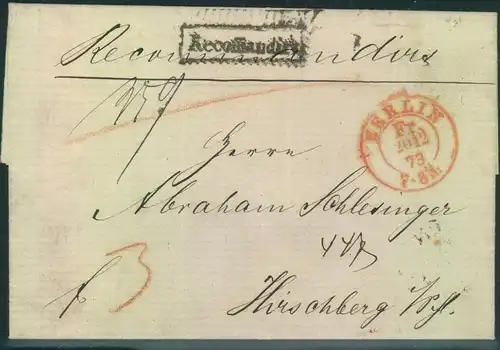 Recommandirt
Recommandirt
BERLIN
20 12
73
7-8N.
Herrn
Abraham Schlesinger
447
3
Hirschberg